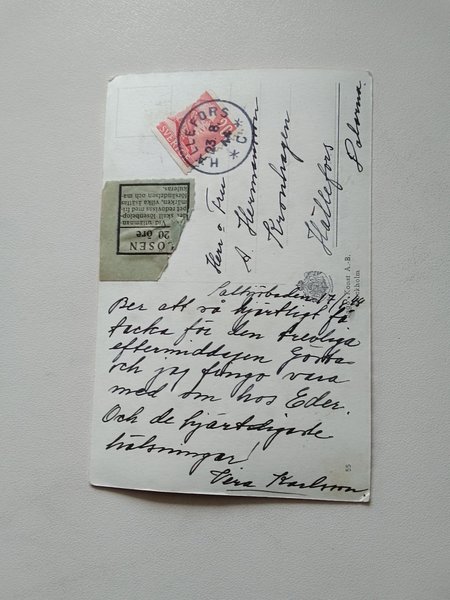 HÄLLEFORS
23.8.
C
LÖSEN
20 öre
Vid utlämnan
skall lösenbelop-
pet redovisas med fri
märken, vilka åsättas
försändelsen och ma
kuleras.
Herr o Fru
A Hermansson
Kronhagen
Hällefors
Dalarna
Konst A.-B.
ckholm
55
Saltsjöbaden 17/8
Ber att så hjärtligt få
tacka för den trevliga
eftermiddagen Gösta
och jag fingo vara
med om hos Eder.
Och de hjärtligaste
hälsningar!
Vera Karlsson